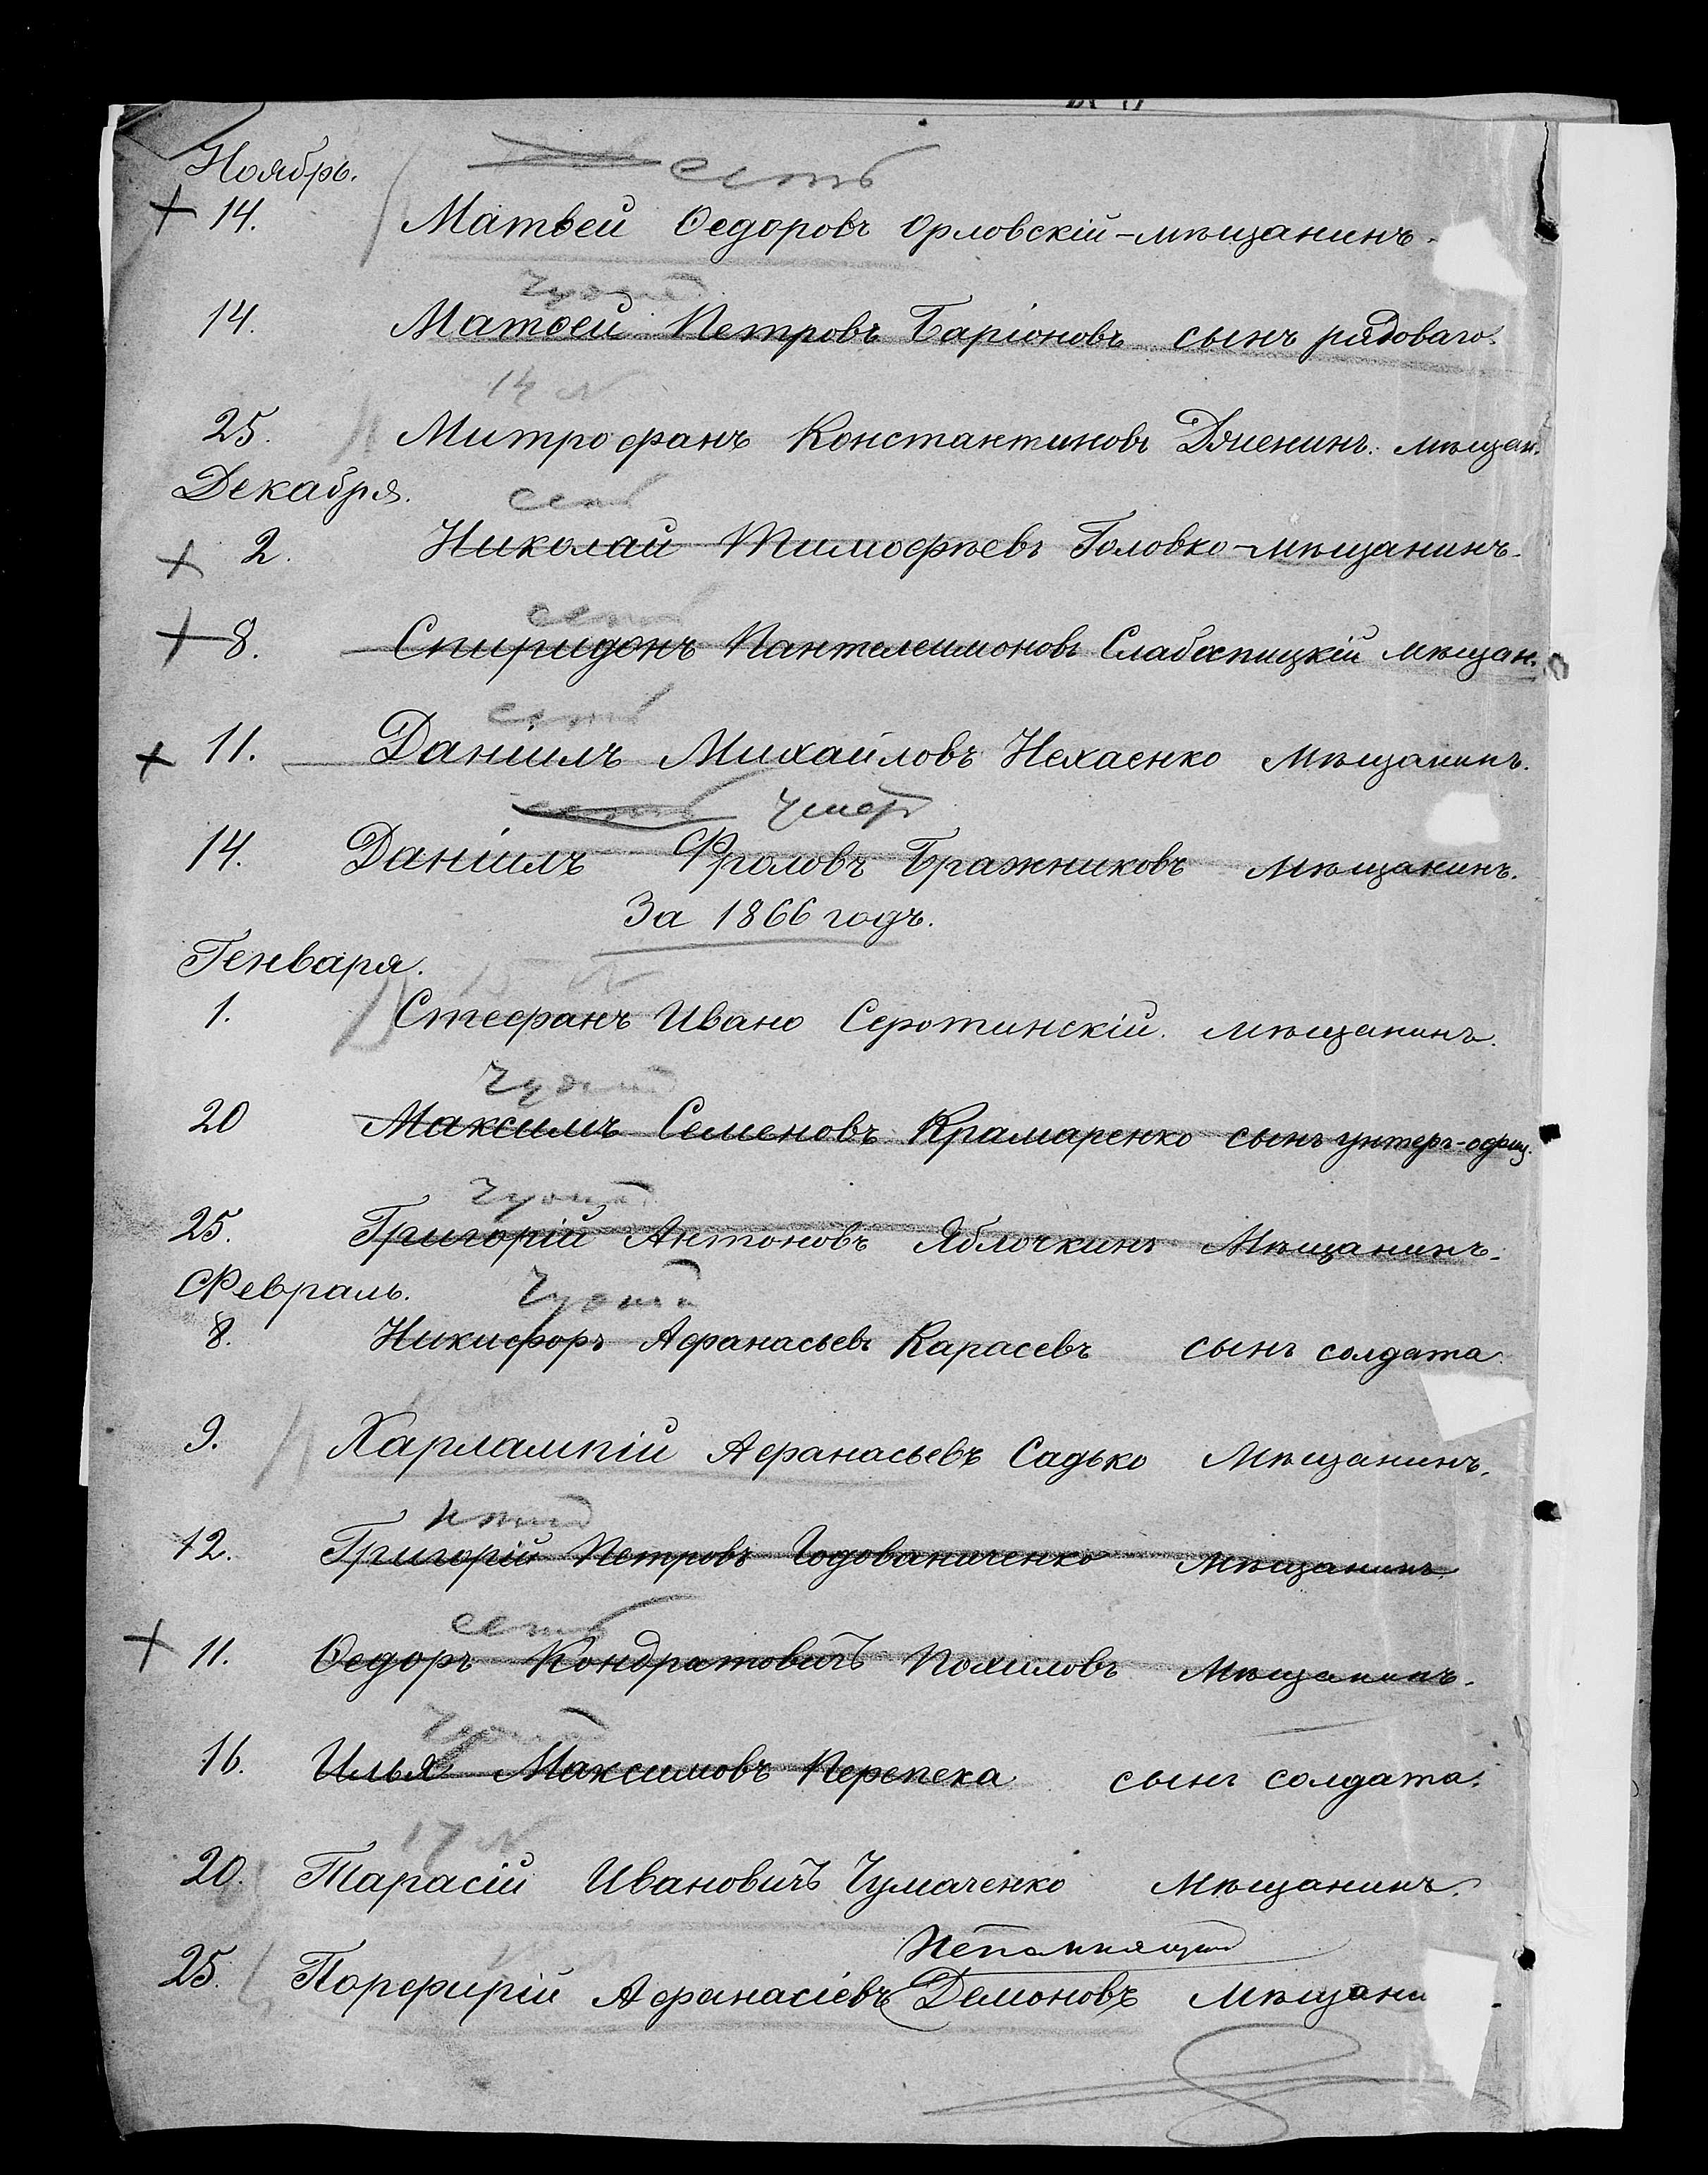 Ноябрь.
есть
14. Матвей Ѳедоровъ Орловскій - мѣщанинъ.
Чужой
14. Матвей Петровъ Баріоновъ сынъ рядоваго.
14 N
25. Митрофанъ Константиновъ мѣщан.
Декабря.
есть
2. Николай Тимофѣевъ Головко - мѣщанинъ.
есть
8. Спиридонъ Пантелеимоновъ мѣщан.
есть
11. Даніилъ Михайловъ Нехаенко мѣщанинъ.
есть умер
14. Даніилъ Фроловъ Бражниковъ мѣщанинъ.
За 1866 годъ.
Генваря.
15 N
1. Стефанъ Ивано Серотинскій. мѣщанинъ.
Чужой
20 Максимъ Семеновъ Крамаренко сынъ унтеръ-офиц.
Чужой
25. Григорій Антоновъ Яблочкинъ мѣщанинъ.
Февраль.
Чужой
8. Никифоръ Афанасьевъ Карасевъ сынъ солдата.
9. Харлампій Афанасьевъ Садько мѣщанинъ.
12. Григорій Петровъ Годованиченко мѣщанинъ.
есть
11. Ѳедоръ Кондратовичъ Похиловъ мѣщанинъ.
Чужой
16. Илья Максимовъ Перепека сынъ солдата.
17 N
20. Тарасій Ивановичъ Чумаченко мѣщанинъ.
Непомнящий
25. Порфирій Афанасіевъ (Демоновъ мѣщани